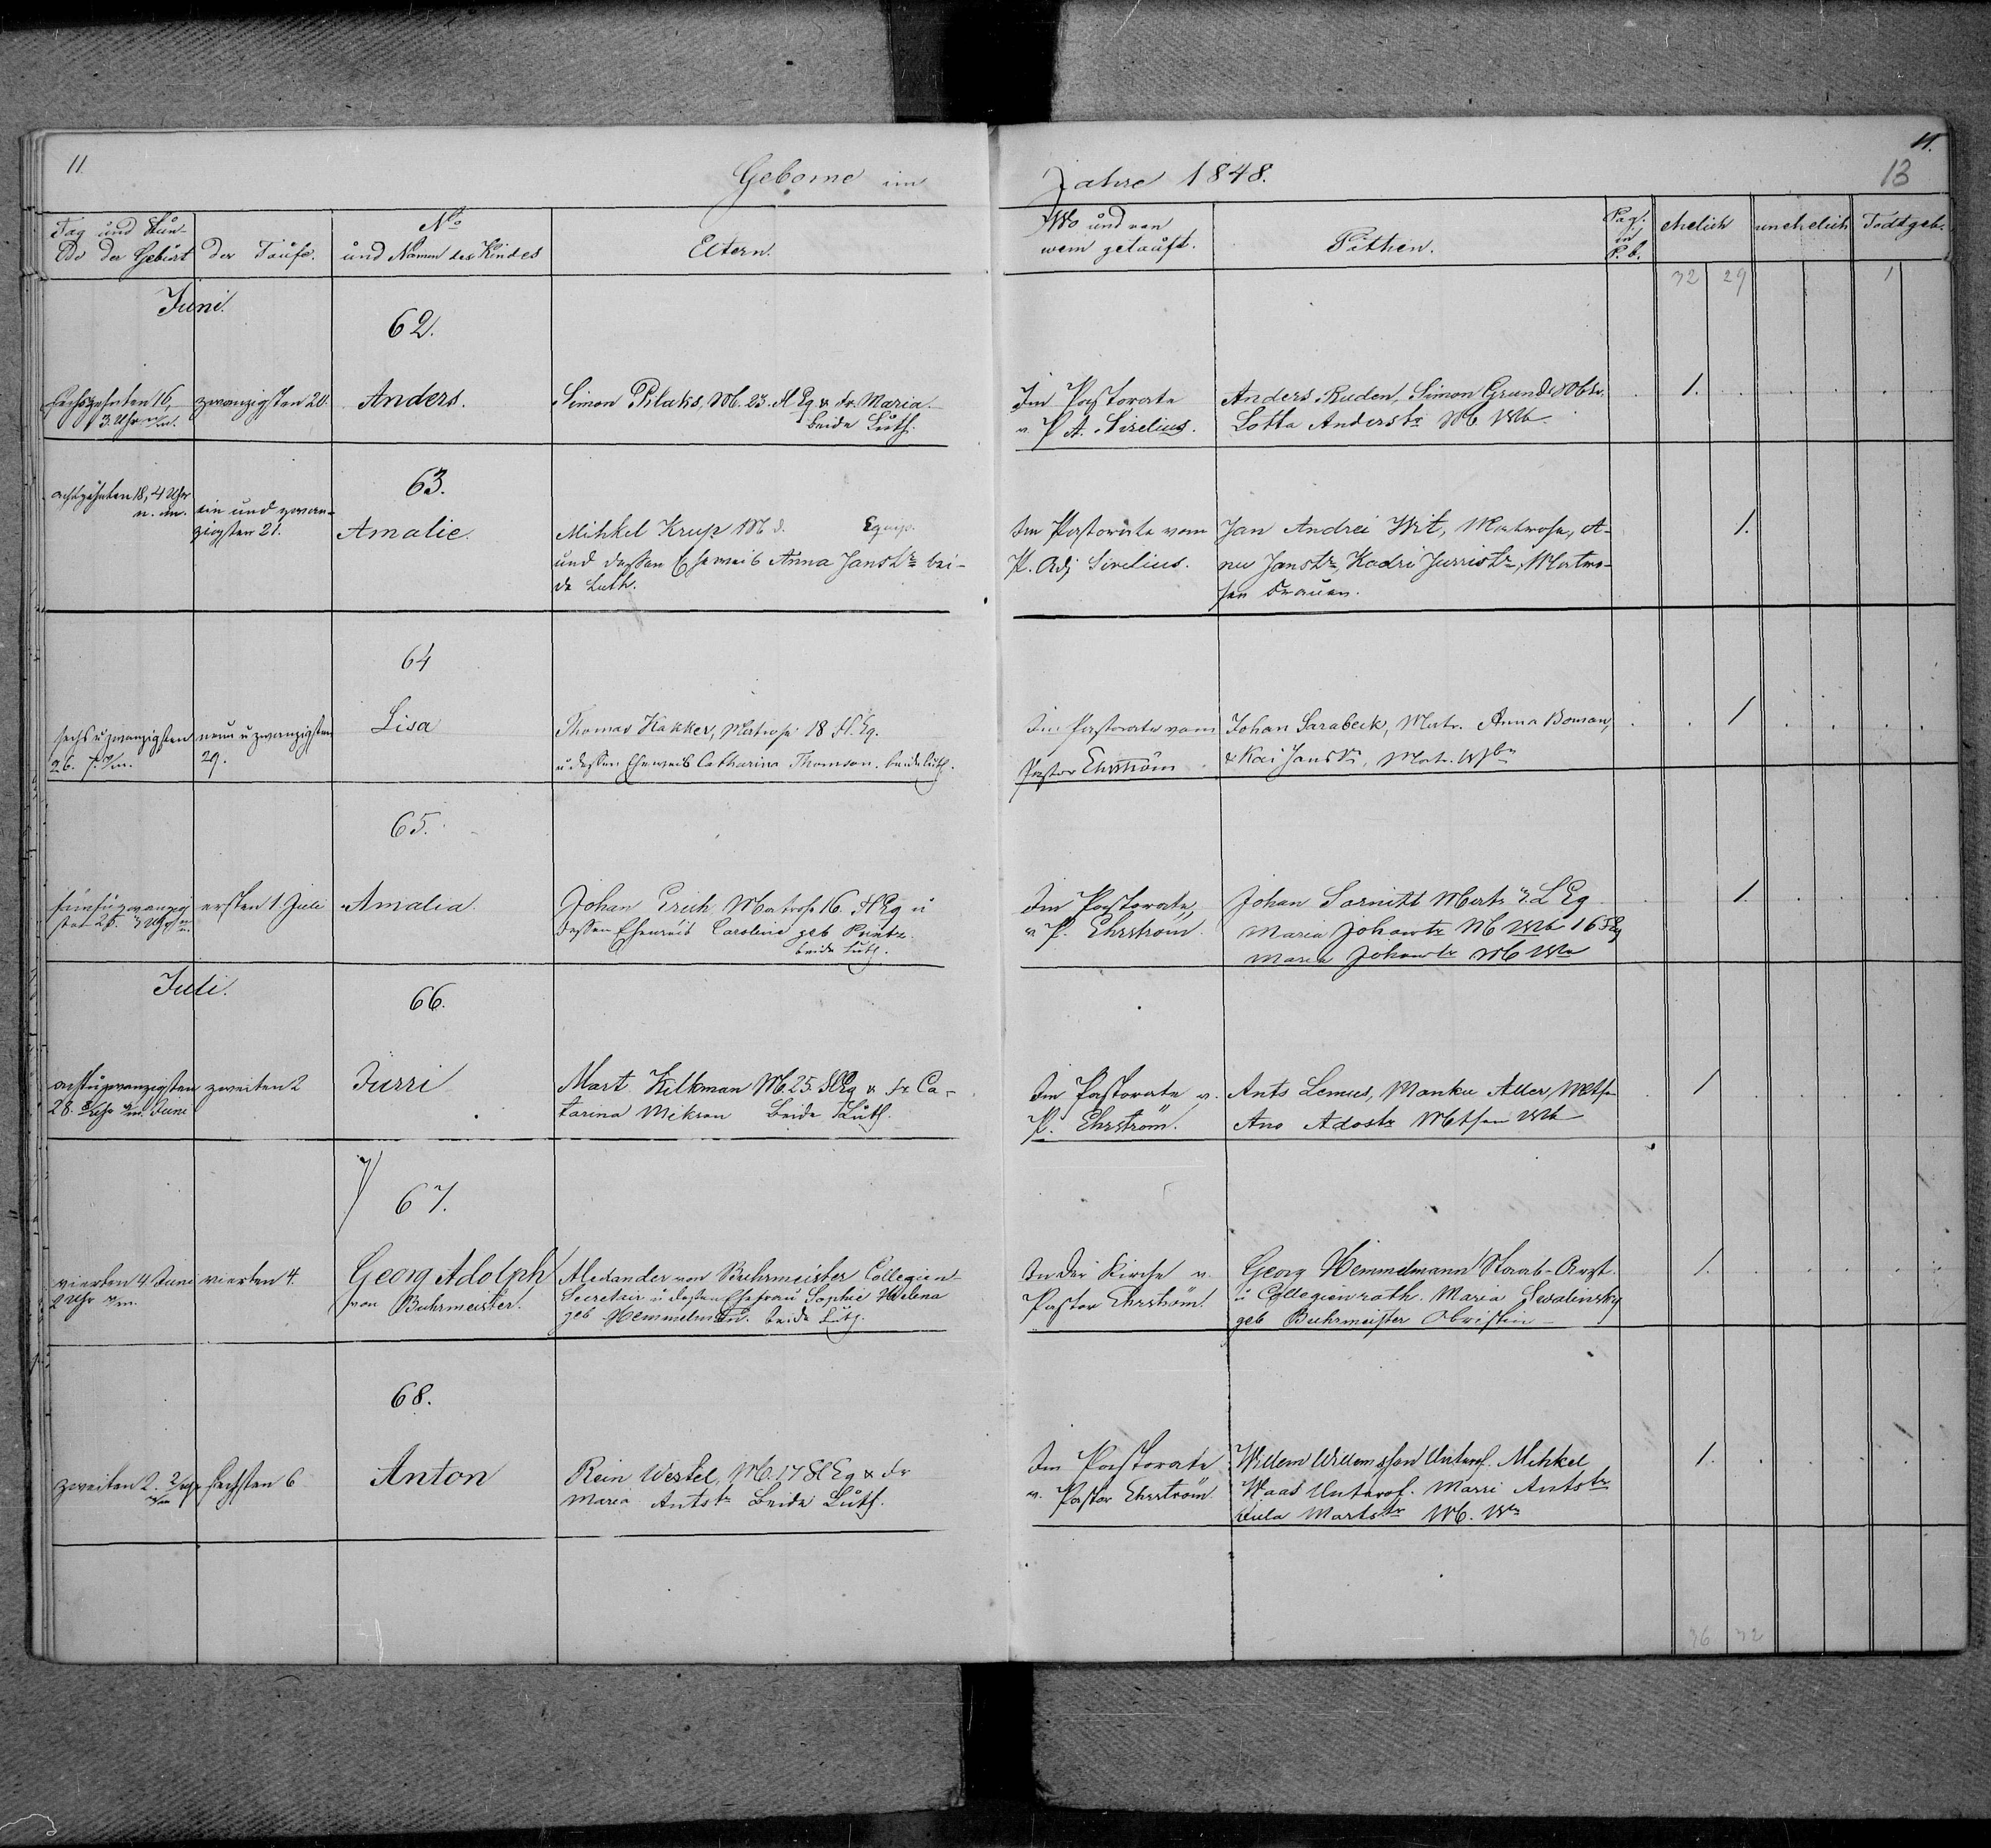 11
11.
13
Geborne im Jahre 1848.
Tag und Stun-
de der Geburt
der Taufe.
No
und Namen des Kindes
Eltern.
Wo und von
wem getauft.
Pathen.
Pag.
in
P. b.
ehelich
unehelich
Todtgeb.
32 29 1
Juni.
62.
sechszehnten 16,
3. Uhr
zwanzigsten 20.
Anders.
Simon Pilaks, M. 23. Fl Eq & Fr. Maria.
Beide Luth.
Im Pastorate
v. P. A. Sirelius.
Anders Ruden, Simon Grund
Lotta Anderstr
1.
63.
achtzehnten 18, 4 Uhr
n. m.
ein und zwan-
zigsten 21.
Amalie.
Mihkel Krup Equip.
und dessen Eheweib Anna Janstr bei-
de Luth.
Im Pastorate vom
P. Adj Sirelius.
Jan Andrei Wit, Matrose, A-
nu Janstr, Kadri Jurristr, Matro-
sen Frauen.
1.
64
sechs u zwanzigsten
26.
neun u zwanzigsten
29.
Lisa
Thomas Kakker, Matrose 18 Fl. Eq.
u dessen Eheweib Catharina Thomson. beide luth.
Im Pastorate vom
Pastor Ehrström
Johan Sarabeck, Matr. Anna Boman,
& Kai Janstr, Matr.
1
65.
ersten 1. Juli
Amalia.
Johan Erich Matrose 16. Fl Eq u
dessen Eheweib Caroline geb
beide luth.
Im Pastorate,
v P. Ehrström.
Johan Matr
Maria Johantr
Maria Johantr
1.
Juli.
66.
achtuzwanzigsten
28. Juni
zweiten 2
Jurri
Mart Kilkman M 25 Fl Eq & Fr. Ca-
tarina Mikson Beide Luth.
Im Pastorate v.
P. Ehrström.
Ants Lemus, Manku Aller,
Ano Adostr
1
67.
vierten 4 Juni
2 Uhr
vierten 4.
Georg Adolph
von Buhrmeister.
Alexander von Buhrmeister Collegien-
Secretair u dessen Ehefrau Sophie Helena
geb Hemmelmann. beide Luth.
In der Kirche v.
Pastor Ehrström.
Georg Hemmelmann Staab-Arzt.
u Collegienrath. Maria
geb Buhrmeister Obristin
1.
68.
zweiten 2.
sechsten 6
Anton
Rein Westel, M. 17 Fl Eq & Fr
Maria Antstr Beide Luth.
Im Pastorate
v. Pastor Ehrström.
Willem Willemsson Unterof. Mihkel
Haas Unterof. Marri Antstr
Martstr
1.
36 32